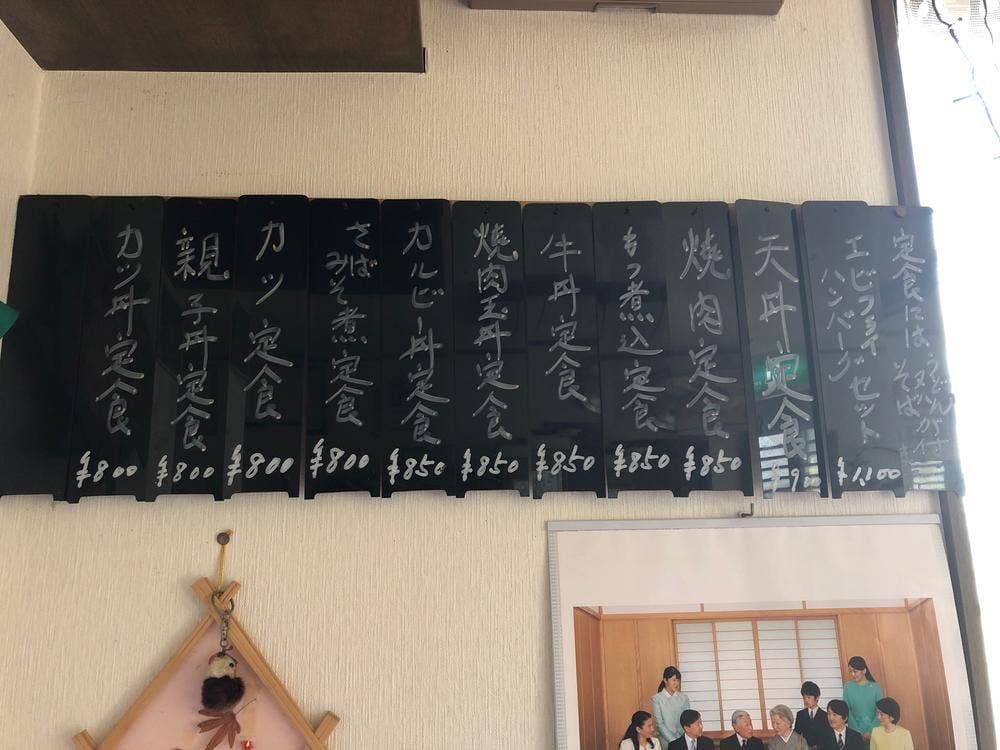 定食には
うどん
又は
そばが付
エビフライ
ハンバーグセット
¥1,100
天丼定食
¥900
焼肉定食
¥850
もつ煮込定食
¥850
牛丼定食
¥850
焼肉玉丼定食
¥850
カルビー丼定食
¥850
さば
みそ煮定食
¥800
カツ定食
¥800
親子丼定食
¥800
カツ丼定食
¥800